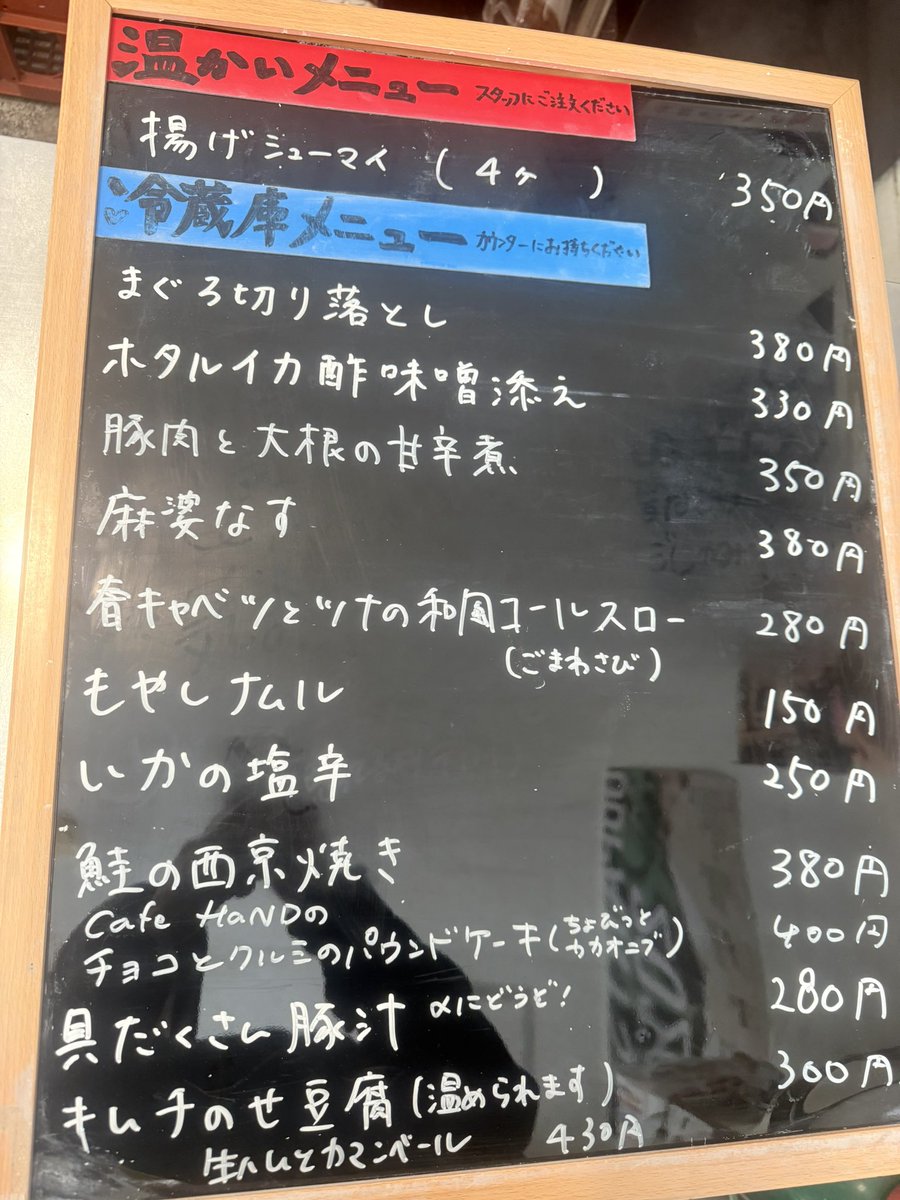 温かいメニュー スタッフにご注文ください
揚げシューマイ (4ヶ) 350円
冷蔵庫メニュー カウンターにお持ちください
まぐろ切り落とし 380円
ホタルイカ酢味噌添え 330円
豚肉と大根の甘辛煮 350円
麻婆なす 380円
春キャベツとツナの和風コールスロー 280円
(ごまわさび)
もやしナムル 150円
いかの塩辛 250円
鮭の西京焼き 380円
Cafe HaNDの
チョコとクルミのパウンドケーキ(ちょびっとカカオニブ) 400円
具だくさん豚汁 〆にどうぞ! 280円
キムチのせ豆腐(温められます) 300円
生ハムとカマンベール 430円